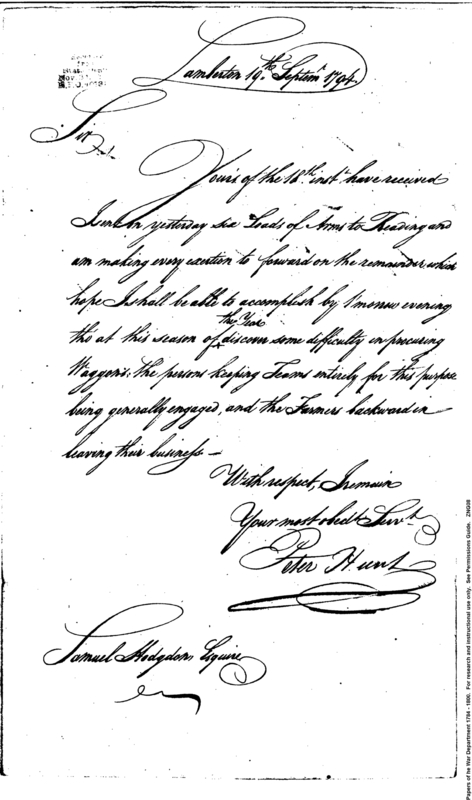 Lamberton 19th Septemr 1794.
Sir
Yours of the 18th inst have received
I sent on yesterday six Loads of Arms to Reading and
am making every exertion to forward on the remainder which
hope I shall be able to accomplish by t'morrow evening
the Year
tho at this season of discover some difficulty in procuring
Waggons; the persons keeping Teams entirely for this purpose
being generally engaged, and the Farmers backward in
leaving their business —
With respect, I remain
Your most obedt Servt
Peter Hunt
Samuel Hodgdon Esquire
Papers of he War Department 1784 - 1800. For research and instructional use only. See Permissions Guide. ZNG98